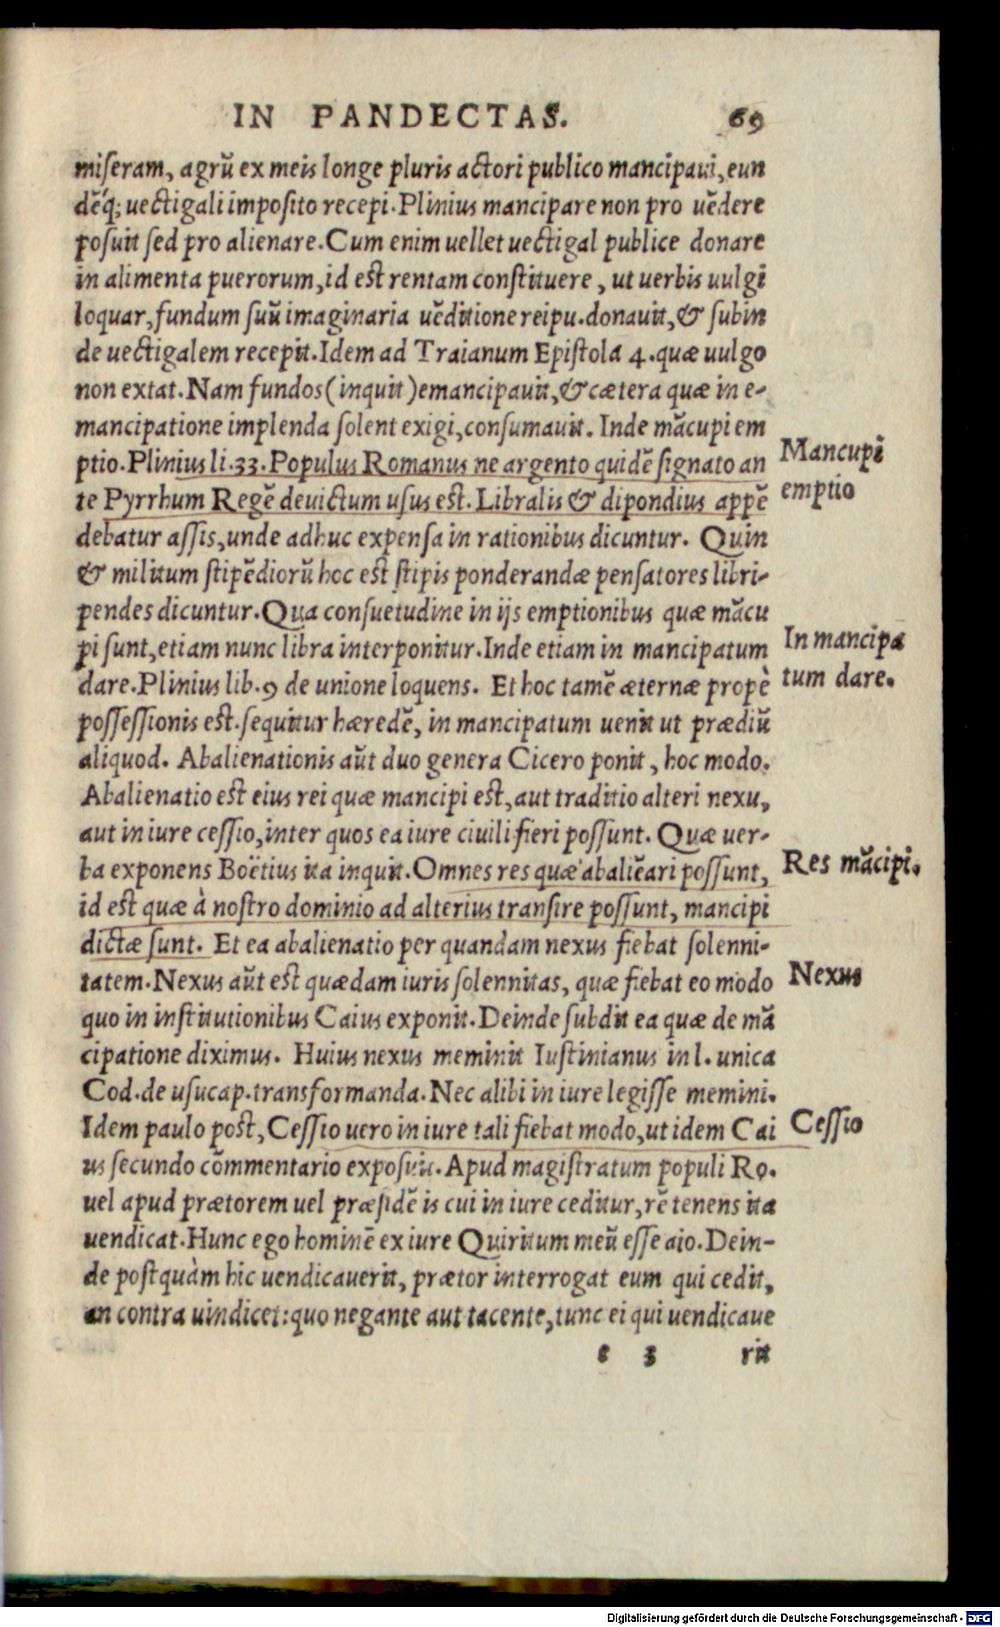 IN PANDECTAS. 69
miseram, agrū ex meis longe pluris actori publico mancipaui, eun
dēq́; uectigali imposito recepi. Plinius mancipare non pro uēdere
posuit sed pro alienare. Cum enim uellet uectigal publice donare
in alimenta puerorum, id est rentam constituere, ut uerbis uulgi
loquar, fundum suū imaginaria uēditione reipu. donauit, & subin
de uectigalem recepit. Idem ad Traianum Epistola 4. quæ uulgo
non extat. Nam fundos (inquit) emancipauit, & cætera quæ in e-
mancipatione implenda solent exigi, consumauit. Inde mācupi em
ptio. Plinius li. 33. Populus Romanus ne argento quidē signato an
te Pyrrhum Regē deuictum usus est. Libralis & dipondius appē
debatur assis, unde adhuc expensa in rationibus dicuntur. Quin
& militum stipēdiorū hoc est stipis ponderandæ pensatores libri-
pendes dicuntur. Qua consuetudine in ijs emptionibus quæ mācu
pi sunt, etiam nunc libra interponitur. Inde etiam in mancipatum
dare. Plinius lib. 9 de unione loquens. Et hoc tamē æternæ propè
possessionis est. sequitur hæredē, in mancipatum uenit ut prædiū
aliquod. Abalienationis aūt duo genera Cicero ponit, hoc modo.
Abalienatio est eius rei quæ mancipi est, aut traditio alteri nexu,
aut in iure cessio, inter quos ea iure ciuili fieri possunt. Quæ uer-
ba exponens Boëtius ita inquit. Omnes res quæ abaliēari possunt,
id est quæ à nostro dominio ad alterius transire possunt, mancipi
dictæ sunt. Et ea abalienatio per quandam nexus fiebat solenni-
tatem. Nexus aūt est quædam iuris solennitas, quæ fiebat eo modo
quo in institutionibus Caius exponit. Deinde subdit ea quæ de mā
cipatione diximus. Huius nexus meminit Iustinianus in l. unica
Cod. de usucap. transformanda. Nec alibi in iure legisse memini.
Idem paulo post, Cessio uero in iure tali fiebat modo, ut idem Cai
us secundo cōmmentario exposuit. Apud magistratum populi Ro.
uel apud prætorem uel præsidē is cui in iure ceditur, rē tenens ita
uendicat. Hunc ego hominē ex iure Quiritum meū esse aio. Dein-
de postquàm hic uendicauerit, prætor interrogat eum qui cedit,
an contra uindicet: quo negante aut tacente, tunc ei qui uendicaue
e 3 rit
Mancupi
emptio
In mancipa
tum dare.
Res mācipi.
Nexus
Cessio
Digitalisierung gefördert durch die Deutsche Forschungsgemeinschaft - DFG